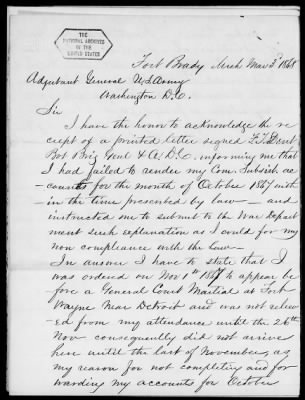 THE
NATIONAL ARCHIVES
OF THE
UNITED STATES
Fort Brady Mich Mar 3d 1868
Adjutant General U.S. Army
Washington D.C.
Sir
I have the honor to acknowledge the re
ceipt of a printed letter signed F.T. Dent
Bvt Brig Genl U.S.A. D.C. informing me that
I had failed to render my Com. Subsist. ac
-counts for the month of October 1867 with
-in the time prescribed by law — and
instructed one to submit to the War Depart
ment such explanation as I could for my
non compliance with the law —
In answer I have to state that I
was ordered on Nov 1st 1867 to appear be
fore a General Court Martial at Fort
Wayne Near Detroit and was not reliev
-ed from my attendance until the 26th
Nov consequently did not arrive
here until the last of November, as
my reason for not completing and for
warding my accounts for October